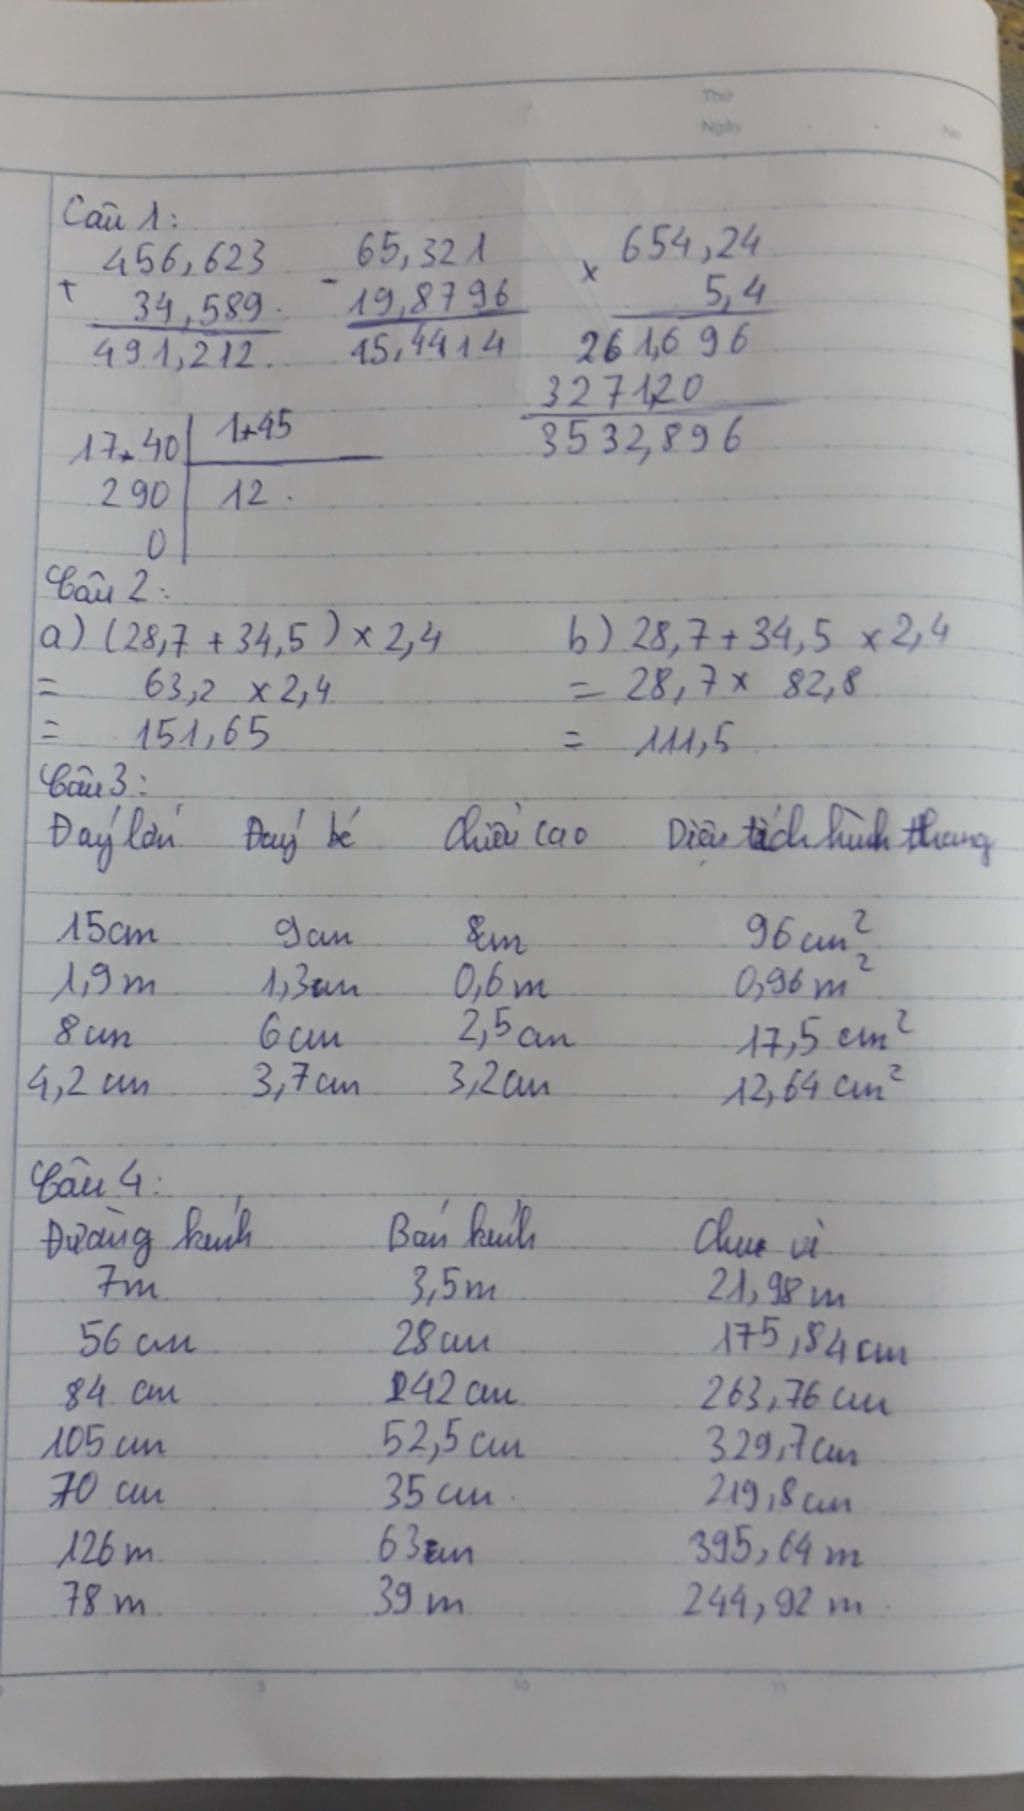 Thứ
Ngày No
Câu 1:
456,623 65,321 654,24
+ 34,589 - 19,8796 x 5,4
491,212 15,4414 261,696
327120
17,40 1,45 3532,896
290 12
0
Câu 2:
a) (28,7 + 34,5) x 2,4 b) 28,7 + 34,5 x 2,4
= 63,2 x 2,4 = 28,7 x 82,8
= 151,65 = 111,5
Câu 3:
Đáy lớn Đáy bé Chiều cao Diện tích hình thang
15cm 9cm 8cm 96cm²
1,9m 1,3cm 0,6m 0,96m²
8cm 6cm 2,5cm 17,5 cm²
4,2 cm 3,7cm 3,2cm 12,64 cm²
Câu 4:
Đường kính Bán kính Chu vi
7m 3,5m 21,98m
56 cm 28cm 175,84cm
84 cm 42cm 263,76cm
105cm 52,5cm 329,7cm
70 cm 35cm 219,8cm
126m 63cm 395,64m
78 m 39 m 244,92 m
5 10 15